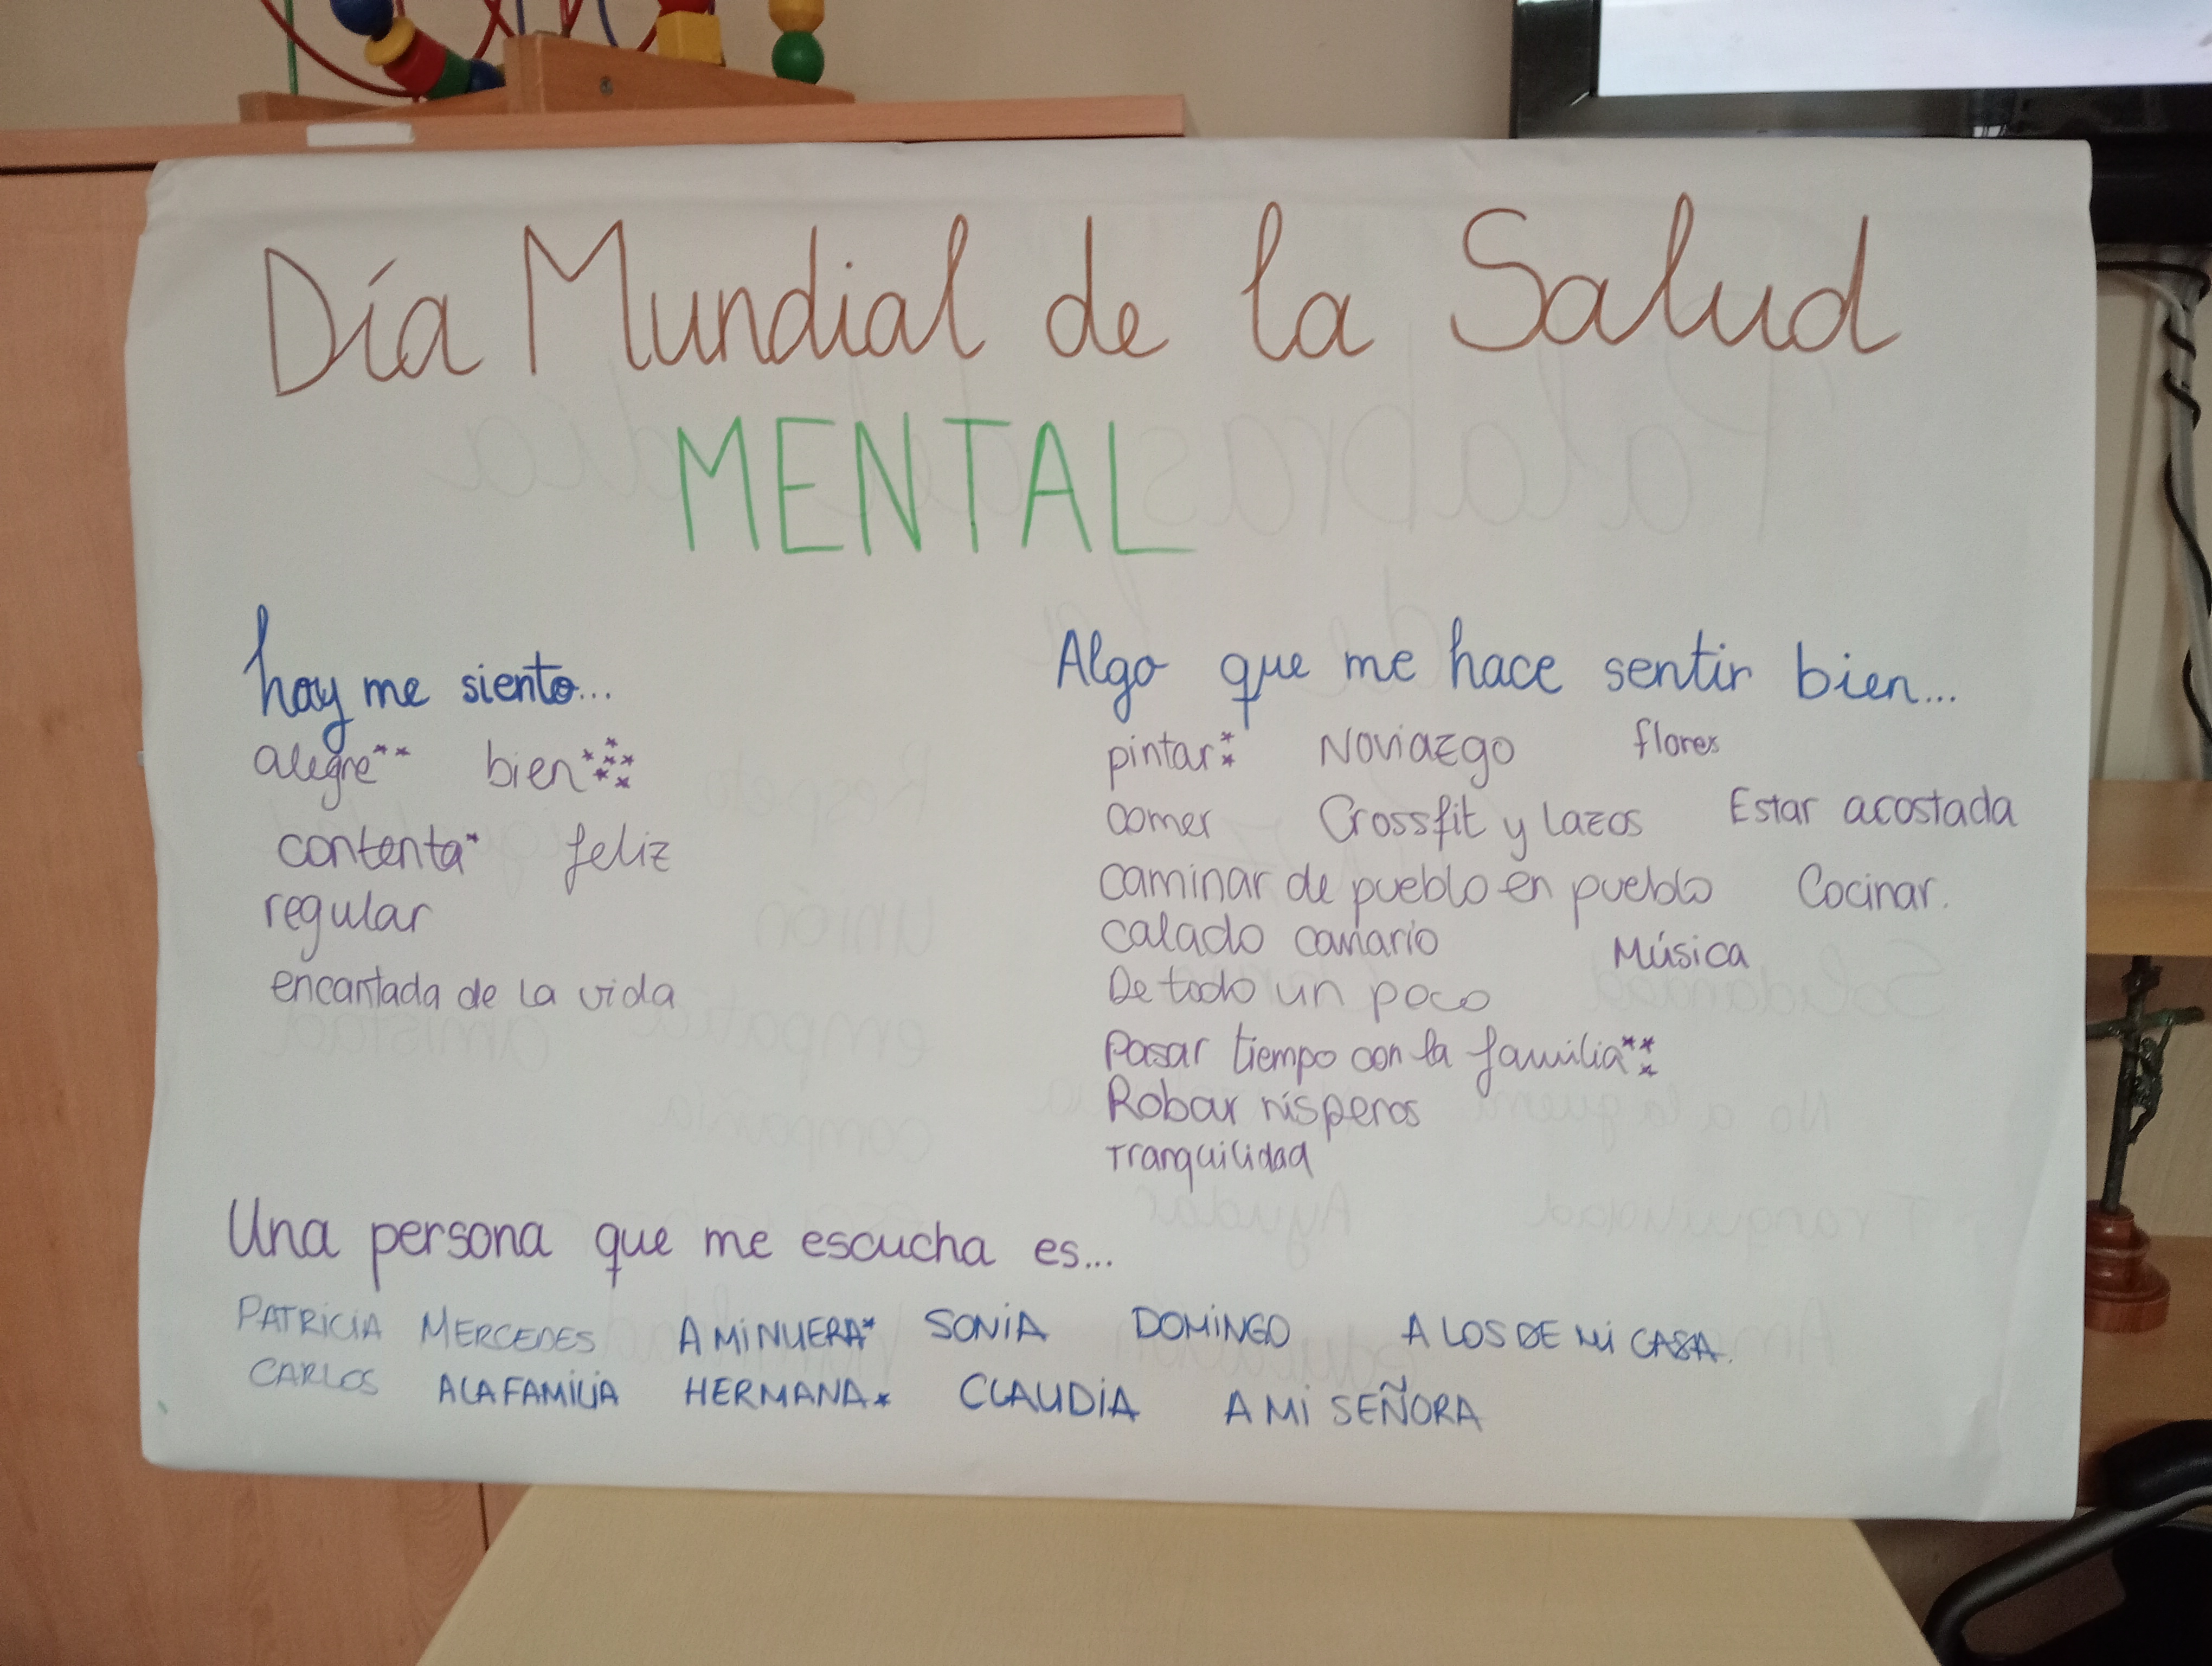 Día Mundial de la Salud
MENTAL
hoy me siento...
alegre** bien*******
contenta* feliz
regular
encantada de la vida
Algo que me hace sentir bien...
pintar** Noviazgo flores
comer Crossfit y Lazos Estar acostada
caminar de pueblo en pueblo Cocinar.
calado canario Música
De todo un poco
Pasar tiempo con la familia****
Robar nísperos
Tranquilidad
Una persona que me escucha es...
PATRICIA MERCEDES A MI NUERA* SONIA DOMINGO A LOS DE MI CASA.
CARLOS A LA FAMILIA HERMANA* CLAUDIA A MI SEÑORA